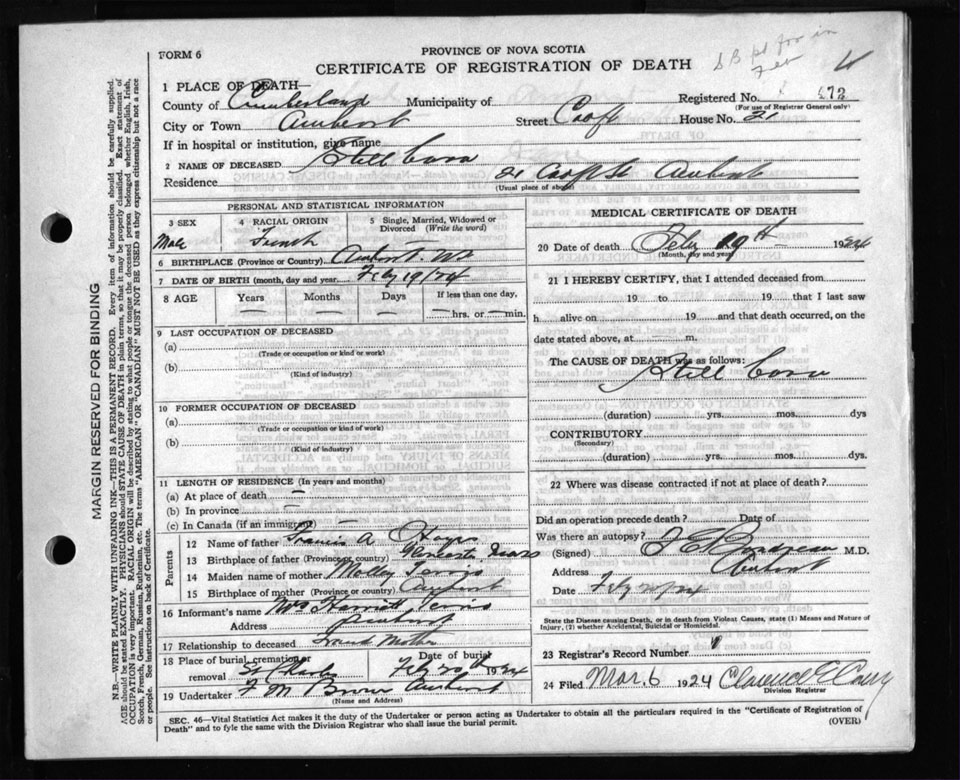 S B pd for in
Feb
FORM 6
PROVINCE OF NOVA SCOTIA
CERTIFICATE OF REGISTRATION OF DEATH
1 PLACE OF DEATH
County of Cumberland Municipality of Registered No. 172
(For use of Registrar General only)
City or Town Amherst Street House No. 21
If in hospital or institution, give name
2 NAME OF DECEASED Still born
Residence 21 Amherst
(Usual place of abode)
PERSONAL AND STATISTICAL INFORMATION
3 SEX 4 RACIAL ORIGIN 5 Single, Married, Widowed or Divorced (Write the word)
Male French
6 BIRTHPLACE (Province or Country) Amherst. NS
7 DATE OF BIRTH (month, day and year) Feby 19/24
8 AGE Years Months Days If less than one day,
hrs. or min.
9 LAST OCCUPATION OF DECEASED
(a)
(Trade or occupation or kind of work)
(b)
(Kind of industry)
10 FORMER OCCUPATION OF DECEASED
(a)
(Trade or occupation or kind of work)
(b)
(Kind of industry)
11 LENGTH OF RESIDENCE (In years and months)
(a) At place of death —
(b) In province —
(c) In Canada (if an immigrant) —
Parents
12 Name of father Francis A. Hayes
13 Birthplace of father (Province or country)
14 Maiden name of mother
15 Birthplace of mother (Province or country) Amherst
16 Informant's name Mrs Harriett
Address Amherst
17 Relationship to deceased Grand Mother
18 Place of burial, cremation or removal St Charles Date of burial Feby 20th 1924
19 Undertaker F. M. Brown Amherst
(Name and Address)
MEDICAL CERTIFICATE OF DEATH
20 Date of death Feby 19th 1924
(Month, day and year)
21 I HEREBY CERTIFY, that I attended deceased from
19 to 19 that I last saw
h alive on 19 and that death occurred, on the
date stated above, at m.
The CAUSE OF DEATH was as follows:
Still born
(duration) yrs. mos. dys
CONTRIBUTORY
(Secondary)
(duration) yrs. mos. dys.
22 Where was disease contracted if not at place of death?
Did an operation precede death? Date of
Was there an autopsy?
(Signed) M.D.
Address Amherst
Date
State the Disease causing Death, or in death from Violent Causes, state (1) Means and Nature of Injury, (2) whether Accidental, Suicidal or Homicidal.
23 Registrar's Record Number
24 Filed Mar. 6 1924 Clarence
Division Registrar
SEC. 46—Vital Statistics Act makes it the duty of the Undertaker or person acting as Undertaker to obtain all the particulars required in the "Certificate of Registration of
Death" and to fyle the same with the Division Registrar who shall issue the burial permit.
(OVER)
MARGIN RESERVED FOR BINDING
N.B.—WRITE PLAINLY WITH UNFADING INK—THIS IS A PERMANENT RECORD. Every item of information should be carefully supplied.
AGE should be stated EXACTLY. PHYSICIANS should STATE CAUSE OF DEATH in plain terms, so that it may be properly classified. Exact statement of
OCCUPATION is very important. RACIAL ORIGIN will be described by stating to what people or tongue the deceased person belonged whether English, Irish,
Scotch, French, German, Russian, Ruthenian, etc. The terms "AMERICAN" or "CANADIAN" MUST NOT BE USED as they express citizenship but not a race
or people. See instructions on back of Certificate.